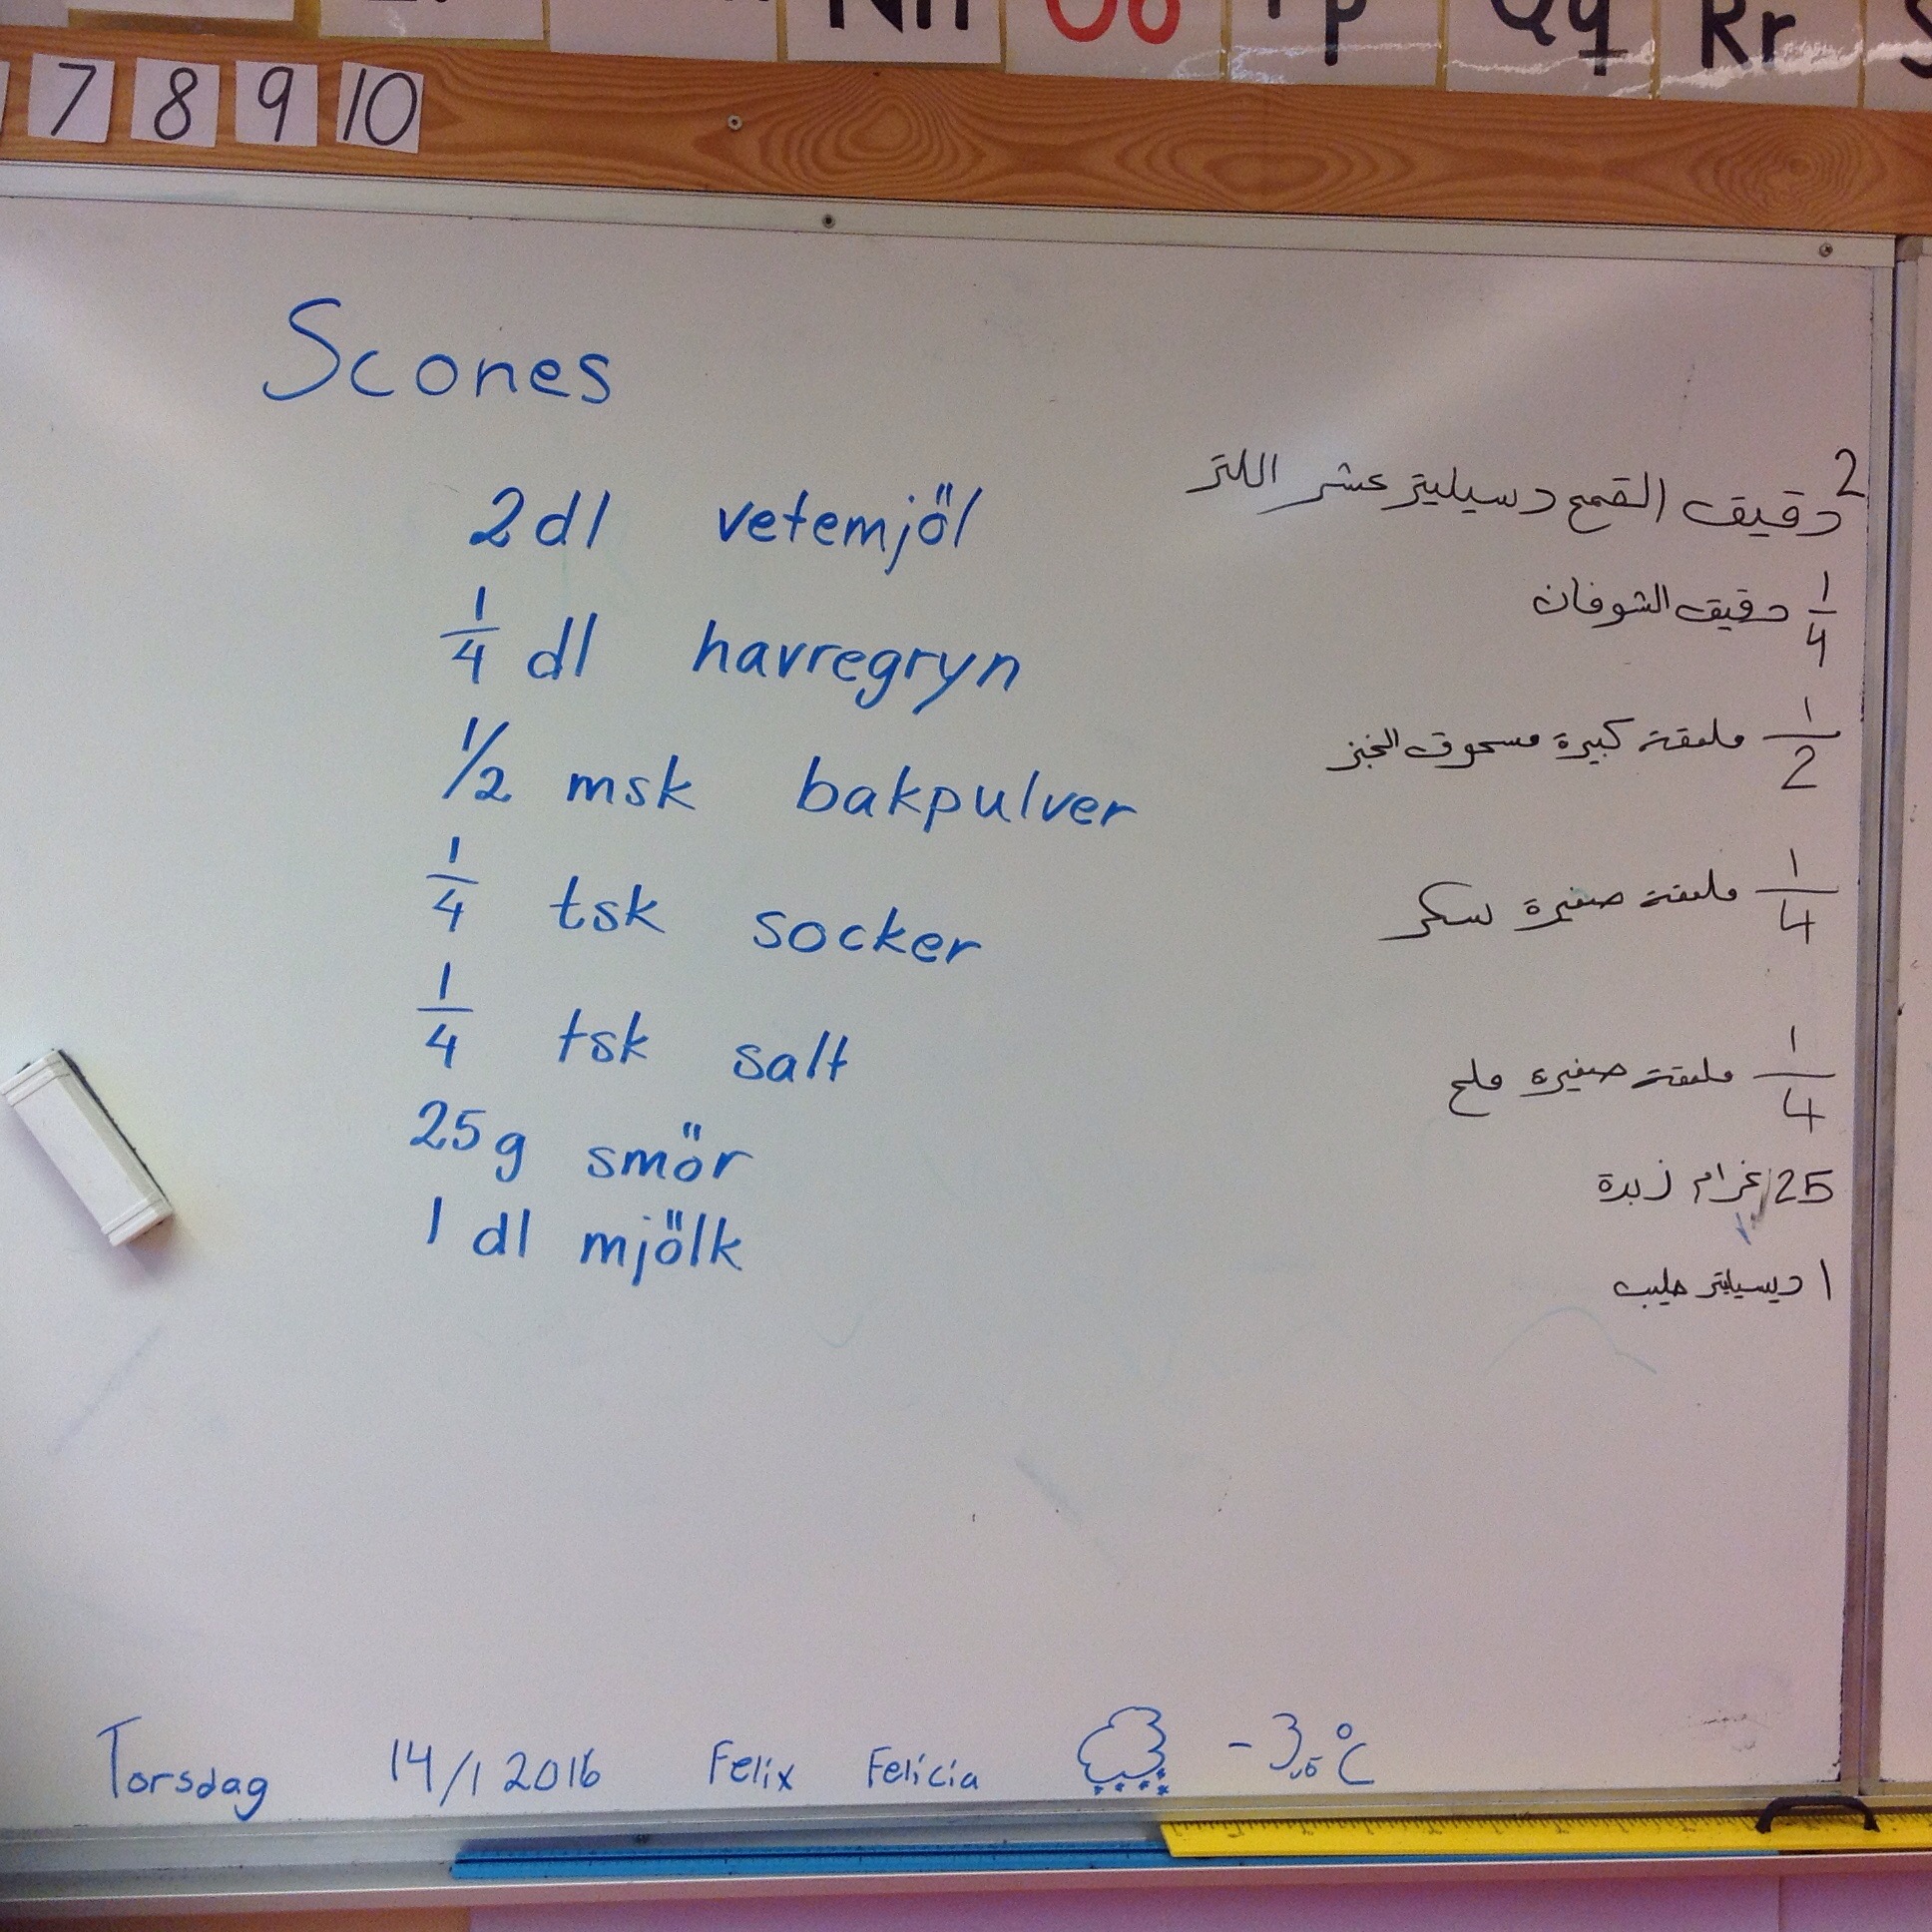 Nn Oo Pp Qq Rr S
7 8 9 10
Scones
2 dl vetemjöl
2 دقيق القمح دسيليتر عشر اللتر
1/4 dl havregryn
1/4 دقيق الشوفان
1/2 msk bakpulver
1/2 ملعقة كبيرة مسحوق الخبز
1/4 tsk socker
1/4 ملعقة صغيرة سكر
1/4 tsk salt
1/4 ملعقة صغيرة ملح
25 g smör
25 غرام زبدة
1 dl mjölk
1 ديسيلتر حليب
Torsdag 14/1 2016 Felix Felicia -3,6 °C